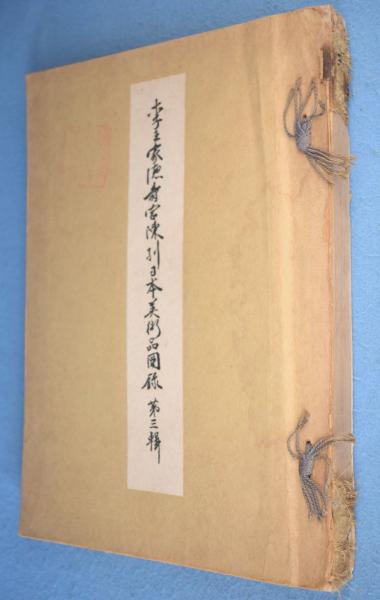 李王家德壽宮陳列日本美術品図録 第三輯